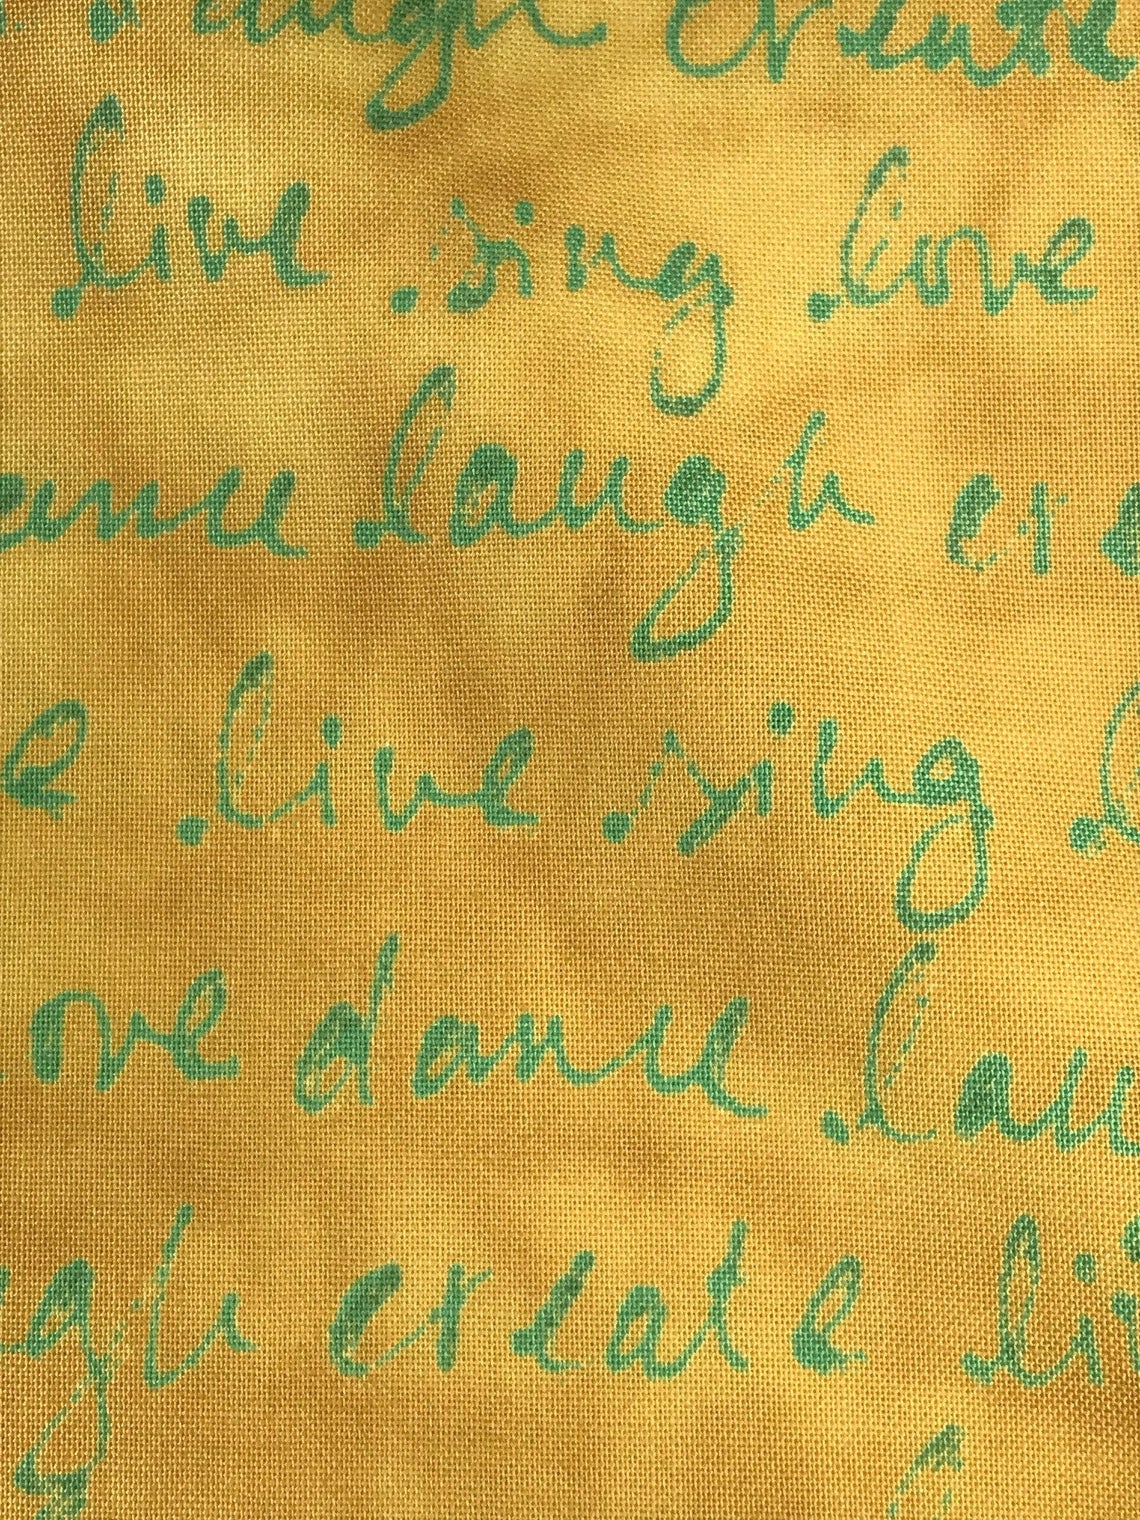 laugh create
live sing love
dance laugh crea
e live sing l
love dance laug
ugh create liv
l